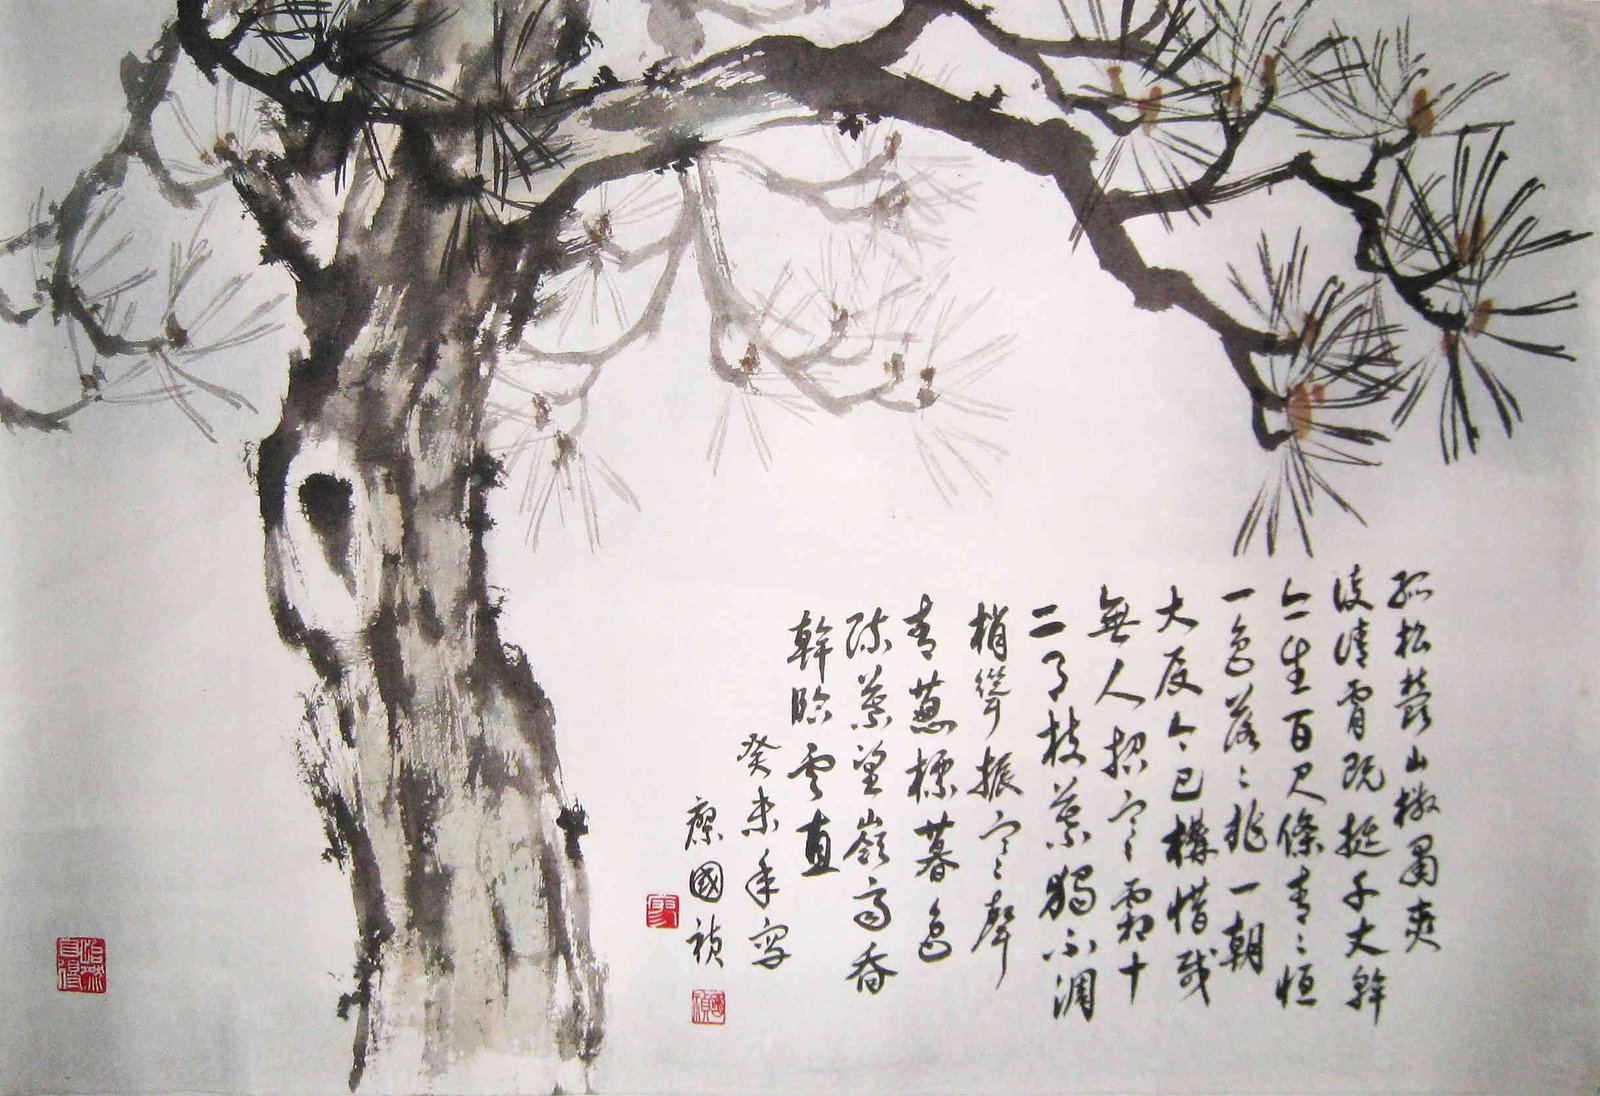 孤松鬱山椒肅爽
凌清霄既挺千丈幹
亦生百尺條青々恒
一色落々非一朝
大厦今已構惜哉
無人招寒霜十
二月枝葉獨不凋
梢聳振寒聲
青蔥標暮色
疏葉望嶺齊喬
幹臨雲直
癸未年寫
廖國禎